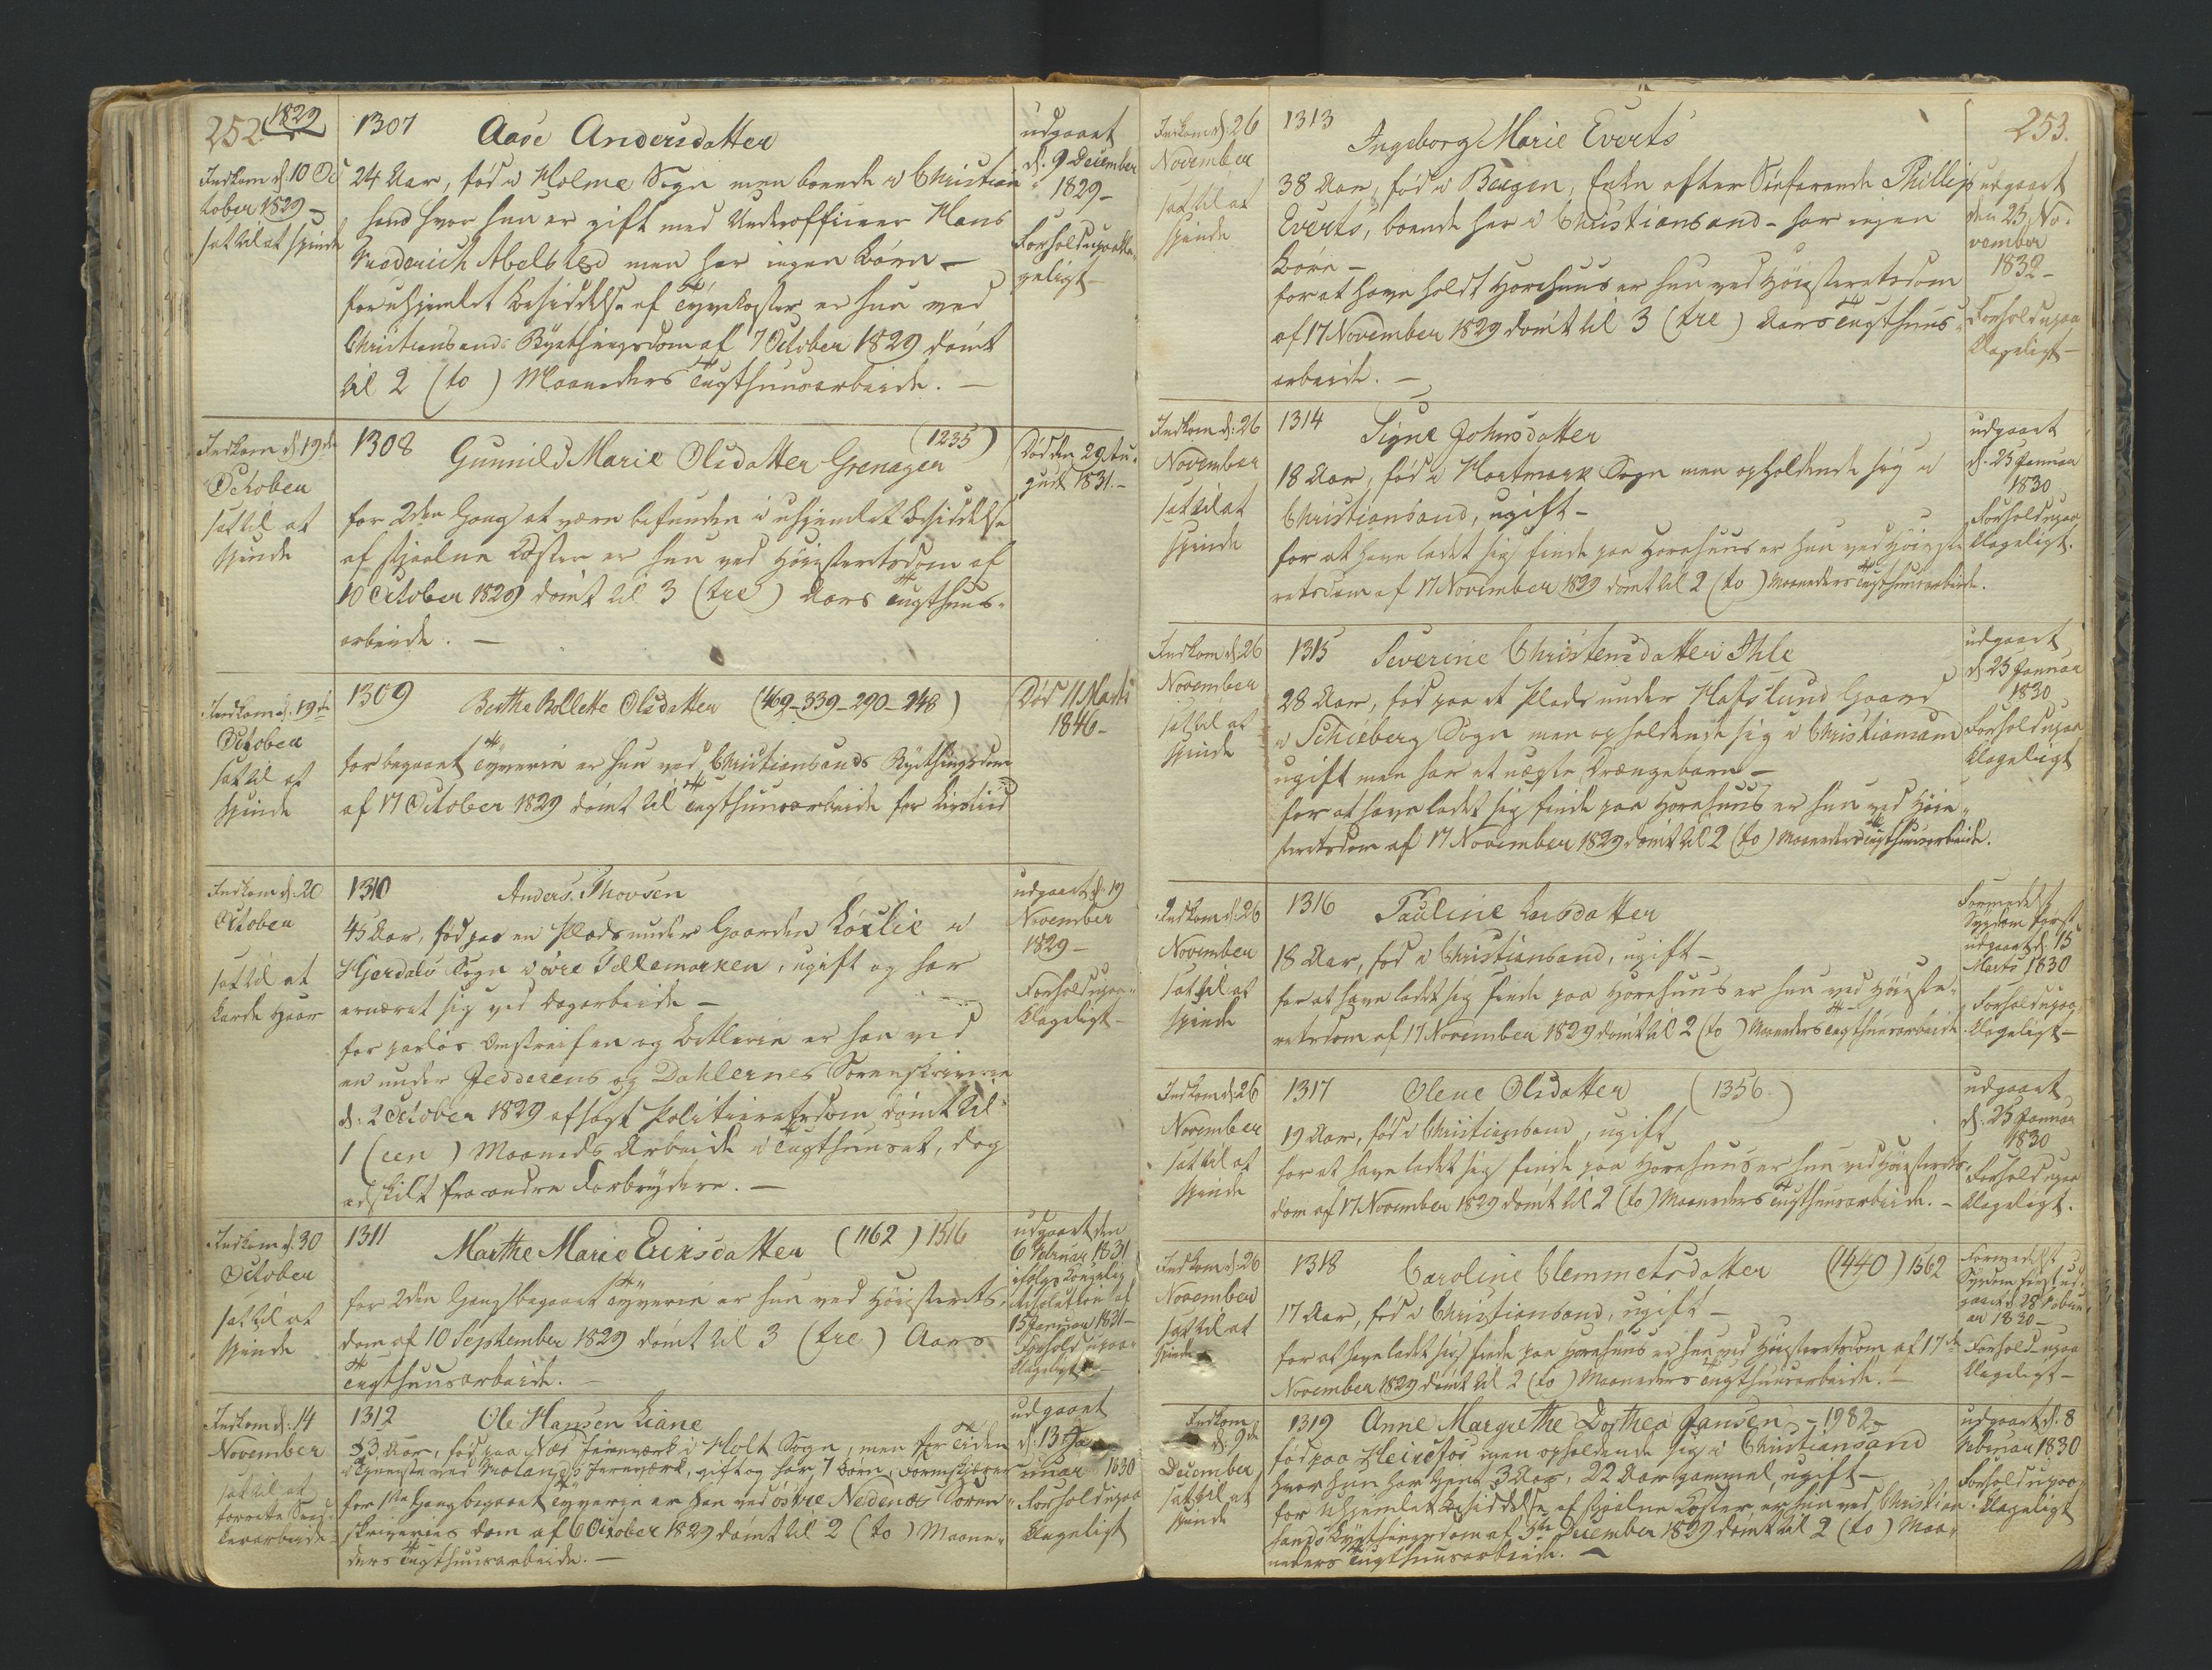 252 1829
Indkom d. 10 Oc
tober 1829 –
sat til at spinde
1307 Aase Andersdatter
24 Aar, fød i Holme Sogn men boende i Christian
sand hvor hun er gift med Underofficer Hans
Friederich Abelsted men har ingen Børn –
for uhjemlet Besiddelse af Tyvekoster er hun ved
Christiansands Byethingsdom af 7 October 1829 dømt
til 2 (to) Maaneders Tugthuusarbeide. –
udgaaet
d. 9 December
1829 –
Forhold upaakla-
geligt –
Indkom d. 19de
October
sat til at
spinde
1308 Gunnild Marie Olsdatter Grenager (1235)
for 2den Gang at være befunden i uhjemlet Besiddelse
af stjaalne Koster er hun ved Høiesteretsdom af
10 October 1829 dømt til 3 (tre) Aars Tugthuus-
arbeide. –
Død den 29 Au-
gust 1831. –
Indkom d. 19de
October
sat til at
spinde
1309 Berthe Bollette Olsdatter (469-339-290-248)
for begaaet Tyverie er hun ved Christiansands Byethingsdom
af 17 October 1829 dømt til Tugthuusarbeide for Livstiid
Død 11 Marts
1846 –
Indkom d. 20
October
sat til at
karde Haar
1310 Anders Thovsen
45 Aar, fød paa en Plads under Gaarden i
Hjerdals Sogn i øvre Tellemarken, ugift og har
ernæret sig ved Dagarbeide –
for pasløs Omstreifen og Betlerie er han ved
en under Jedderens og Dahlernes Sorenskriverie
d. 2 October 1829 afsagt Politieretsdom dømt til
1 (een) Maaneds Arbeide i Tugthuuset, dog
adskilt fra andre Forbrydere. –
udgaaet d. 19
November
1829 –
Forhold upaa-
klageligt –
Indkom d. 30
October
sat til at
spinde
1311 Marthe Marie Eriksdatter (1162) 1516
for 2den Gang begaaet Tyverie er hun ved Høiesterets-
dom af 10 September 1829 dømt til 3 (tre) Aars
Tugthuusarbeide. –
udgaaet den
6 Februar 1831
ifølge Kongelig
Resolution af
15 Januar 1831 –
Forhold upaa-
klageligt
Indkom d. 14
November
sat til at
forrette Sned-
kerarbeide
1312 Ole Hansen Liane
53 Aar, fød paa Næs Jernværk i Holt Sogn, men for Tiden
i Tjeneste ved Jernværk, gift og har 7 Børn,
for 1ste Gang begaaet Tyverie er han ved østre Nedenæs Soren-
skriveries Dom af 6 October 1829 dømt til 2 (to) Maane-
ders Tugthuusarbeide. –
udgaaet
d. 13 Ja-
nuar 1830
Forhold upaa-
klageligt
253.
Indkom d. 26
November
sat til at
spinde
1313
Ingeborg Marie Everts
38 Aar, fød i Bergen, Enke efter Søefarende Phillip
Everts, boende her i Christiansand – har ingen
Børn –
for at have holdt Horehuus er hun ved Høiesteretsdom
af 17 November 1829 dømt til 3 (tre) Aars Tugthuus-
arbeide. –
udgaaet
den 25 No-
vember
1832 –
Forhold upaa
klageligt –
Indkom d. 26
November
sat til at
spinde
1314 Signe Johnsdatter
18 Aar, fød i Hartmark Sogn men opholdende sig i
Christiansand, ugift –
for at have ladet sig finde paa Horehuus er hun ved Høieste
retsdom af 17 November 1829 dømt til 2 (to) Maaneders Tugthuusarbeide.
udgaaet
d. 25 Januar
1830
Forhold upaa
klageligt.
Indkom d. 26
November
sat til at
spinde
1315 Severine Christensdatter Ihle
28 Aar, fød paa et Plads under Hafslund Gaard
i Schieberg Sogn men opholdende sig i Christiansand
ugift men har et uægte Drængebarn –
for at have ladet sig finde paa Horehuus er hun ved Høie-
steretsdom af 17 November 1829 dømt til 2 (to) Maaneders Tugthuusarbeide.
udgaaet
d. 25 Januar
1830
Forhold upaa
klageligt
Indkom d. 26
November
sat til at
spinde
1316 Pauline Larsdatter
18 Aar, fød i Christiansand, ugift –
for at have ladet sig finde paa Horehuus er hun ved Høieste-
retsdom af 17 November 1829 dømt til 2 (to) Maaneders Tugthuusarbeide
Formedelst
Sygdom først
udgaaet d. 15
Marts 1830
Forhold upaa
klageligt –
Indkom d. 26
November
sat til at
spinde
1317 Olene Olsdatter (1356.)
19 Aar, fød i Christiansand, ugift
for at have ladet sig finde paa Horehuus er hun ved Høiesterets-
dom af 17 November 1829 dømt til 2 (to) Maaneders Tugthuusarbeide. –
udgaaet
d. 25 Januar
1830
Forhold upaa
klageligt.
Indkom d. 26
November
sat til at
spinde
1318 Caroline Clemmetsdatter (1440) 1562
17 Aar, fød i Christiansand, ugift –
for at have ladet sig finde paa Horehuus er hun ved Høiesteretsdom af 17de
November 1829 dømt til 2 (to) Maaneders Tugthuusarbeide. –
Formedelst
Sygdom først ud-
gaaet d. 28 Febru-
ar 1830 –
Forhold upaa
klageligt –
Indkom
d. 9de
December
sat til at
spinde
1319 Anne Margrethe Dorthea Jansen – 1982 –
fød paa Heirefos men opholdende sig i Christiansand
hvor hun har tjent 3 Aar, 22 Aar gammel, ugift –
for uhjemlet Besiddelse af stjaalne Koster er hun ved Christian-
sands Byethingsdom af 5te December 1829 dømt til 2 (to) Maa-
neders Tugthuusarbeide. –
udgaaet d. 8
Februar 1830
Forhold upaa
klageligt